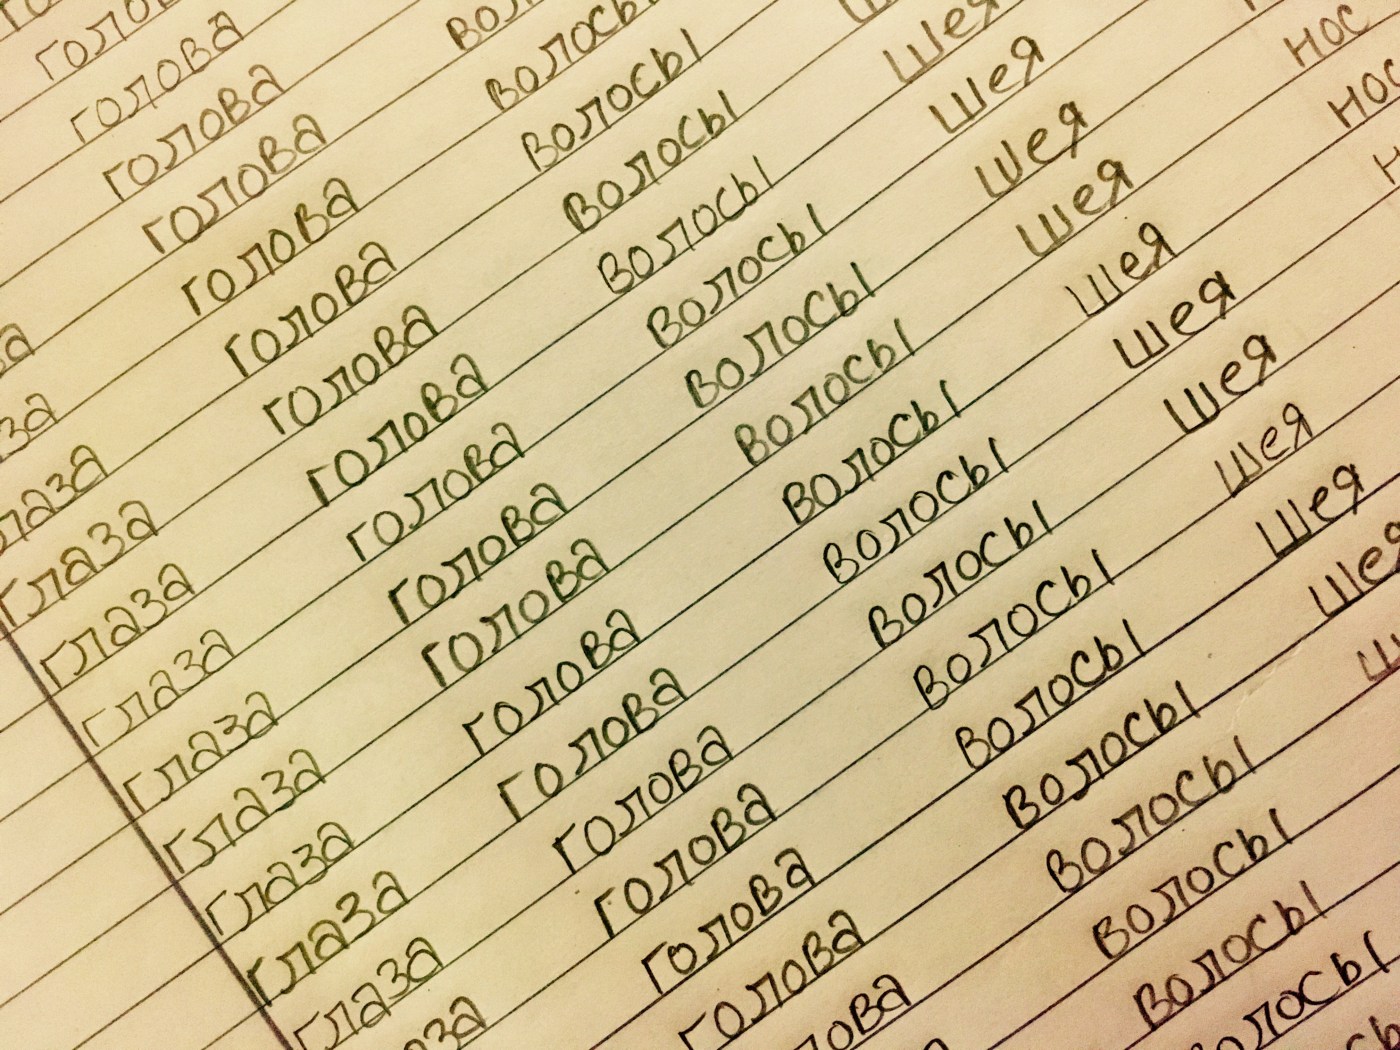 голова
голова
голова
голова
голова волосы
голова волосы
глаза голова волосы
глаза голова волосы шея
глаза голова волосы шея
глаза голова волосы шея
глаза голова волосы шея нос
глаза голова волосы шея нос
глаза голова волосы шея
глаза голова волосы шея
голова волосы шея
голова волосы шея
голова волосы шея
волосы
волосы
волосы
волосы